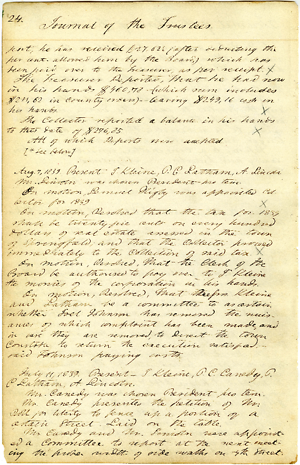 24.
Journal of the Trustees
port, he has received $27.022 (after deducting the
per cent. allowed him by the board) which has
been paid over to the treasurer, as per receipt. X
The Treasurer Reported, that he had now
in his hands $500,70 (which sum includes
in county orders) leaving cash in
his hands
The Collector reported a balance in his hands
to this date of $296,25 X
All of which Reports were accepted
[See below]
Aug 7, 1839 Present J Kleine, P. C. Latham, A Lincoln
Mr. Lincoln was chosen President pro tem.
On motion Lemuel was appointed Col
lector for 1839
On motion, Resolved that the tax for 1839
shall be twenty five cents on every hundred
dollars of real estate assessed in the town
of Springfield and that the Collector proceed
immediately to the Collection of said tax
On motion Resolved, That the Clerk of the
Board be authorised to pay over to J Kleine
the monies of the corporation in his hands.
On motion Resolved, that Kleine
and Latham be a committee to ascertain
whether Joel Johnson has removed the nuis
ance of which complaint has been made, and
in case they are removed, to direct the town
Constable to return the execution
said Johnson paying costs,
July 11, 1839. Present J Kleine, P. C. Canedy, P.
C Latham, A. Lincoln.
Mr. Canedy was chosen President pro tem.
Mr. Canedy presents the petition of
for liberty to fence up a portion of a
certain street. Laid on the table.
Mr. Canedy and Mr. Lincoln were appoint
ed a Committee to report at the next meet
ing the proper width of side walks on street.